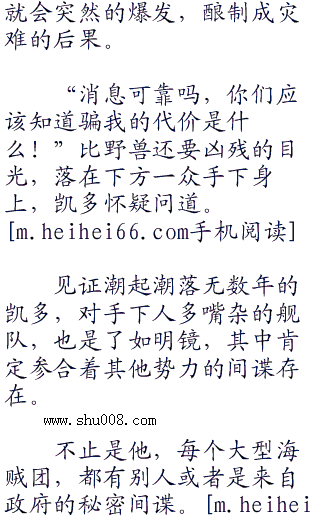 就会突然的爆发，酿制成灾
难的后果。
“消息可靠吗，你们应
该知道骗我的代价是什
么！”比野兽还要凶残的目
光，落在下方一众手下身
上，凯多怀疑问道。
[m.heihei66.com手机阅读]
见证潮起潮落无数年的
凯多，对手下人多嘴杂的舰
队，也是了如明镜，其中肯
定参合着其他势力的间谍存
在。
www.shu008.com
不止是他，每个大型海
贼团，都有别人或者是来自
政府的秘密间谍。[m.heihei